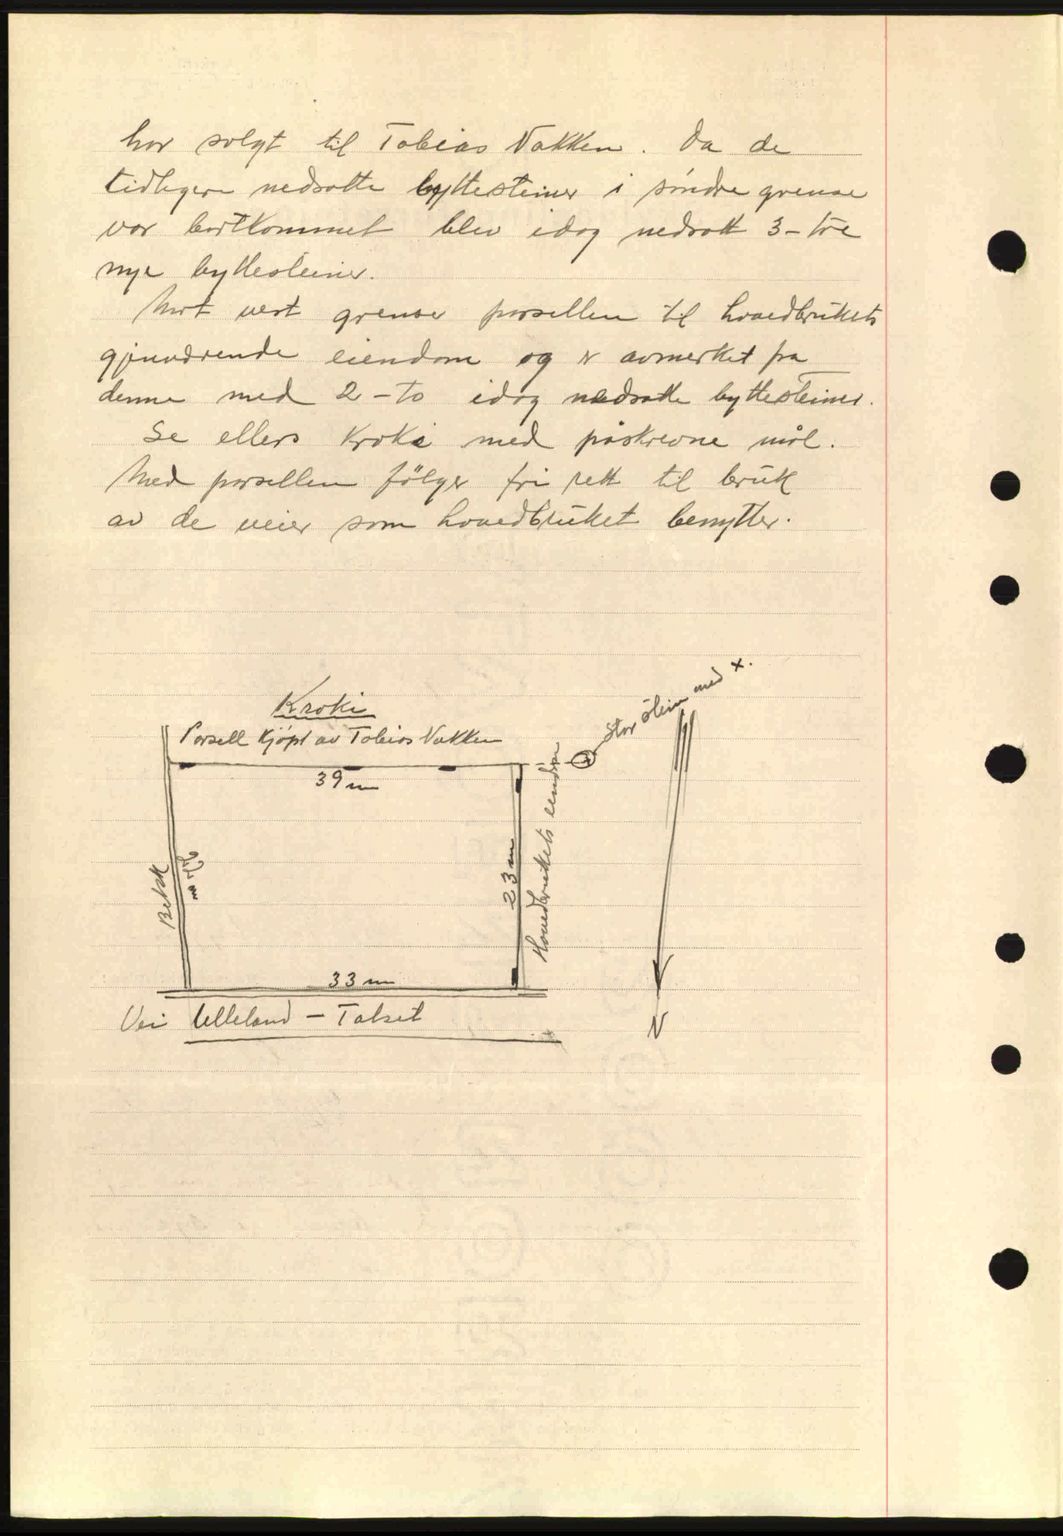 har solgt til Tobias Vakken. Da de
tidligere nedsatte byttesteiner i søndre grense
var bortkommet blev idag nedsatt 3-tre
nye byttesteiner.
Mot vest grenser parsellen til hovedbrukets
gjenværende eiendom og er avmerket fra
denne med 2-to idag nedsatte byttesteiner.
Se ellers kroki med påskrevne mål.
Med parsellen følger fri rett til bruk
av de veier som hovedbruket benytter.
Stor stein med x.
Kroki
Parsell kjöpt av Tobias Vakken
39 m
Hovedbrukets eiendom
23 m
Bekk
33 m
Vei Ulleland - Talset
N